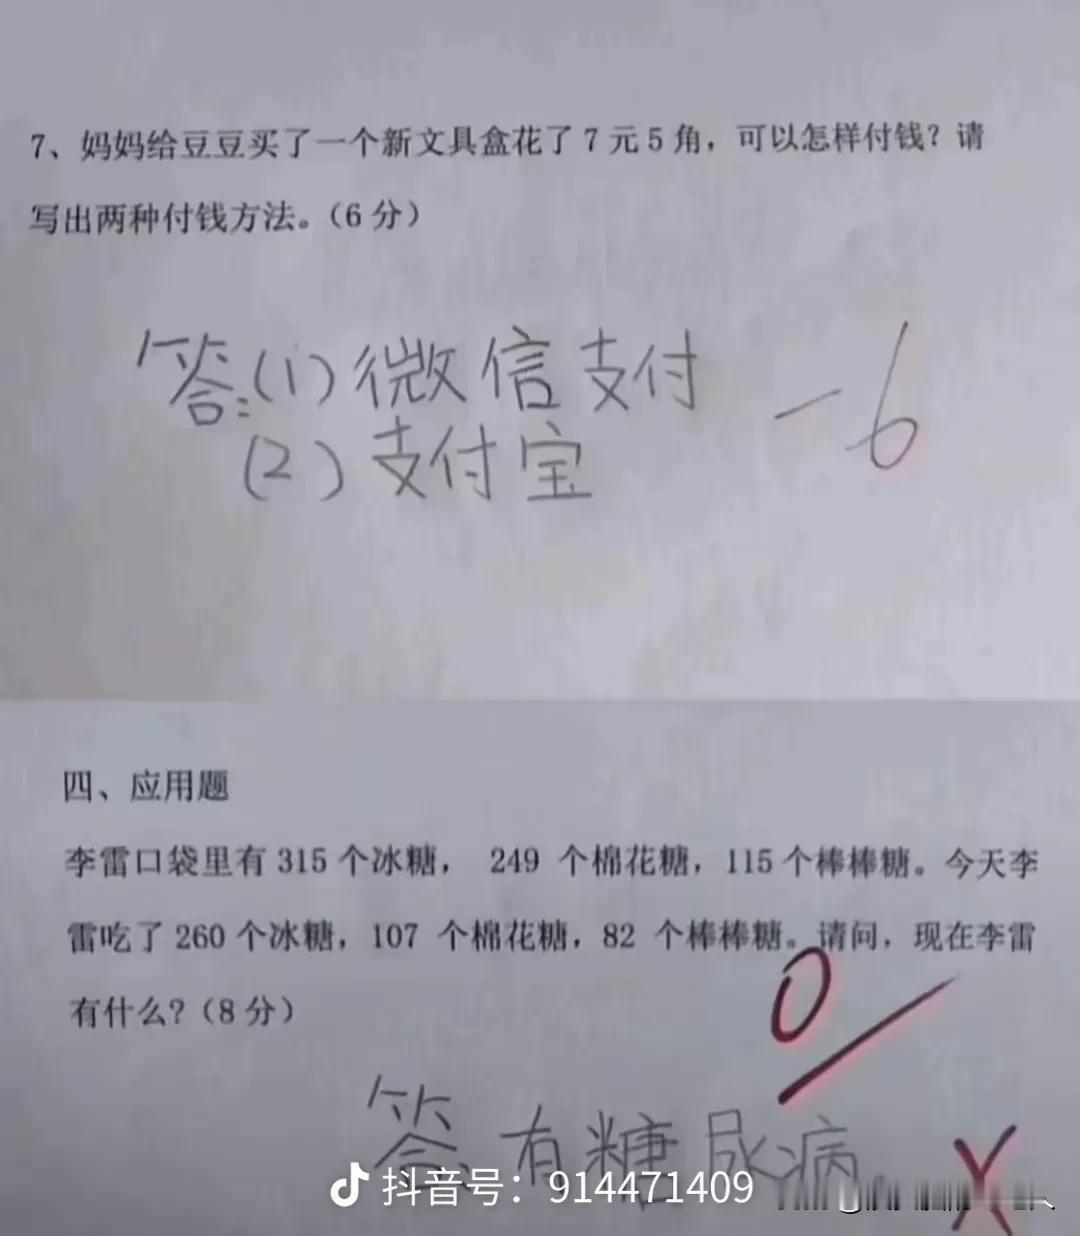 7、妈妈给豆豆买了一个新文具盒花了7元5角，可以怎样付钱？请
写出两种付钱方法。（6分）
答：(1)微信支付
-6
(2)支付宝
四、应用题
李雷口袋里有315个冰糖， 249 个棉花糖，115个棒棒糖。今天李
雷吃了260个冰糖，107 个棉花糖，82 个棒棒糖。请问，现在李雷
有什么？（8分）
0
答：有糖尿病。
X
抖音号：914471409